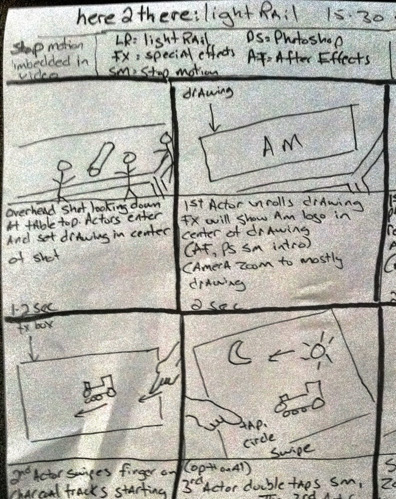 here 2 there: light Rail 15:30
Stop motion
imbedded in
video
LR= light Rail PS= Photoshop
fx= special effects AF= After Effects
SM= Stop motion
drawing
AM
overhead shot looking down
At table top. Actors enter
And set drawing in center
of shot
1-2 sec
1st Actor unrolls drawing
fx will show Am logo in
center of drawing
(AF, PS sm intro)
CAmerA zoom to mostly
drawing
2 sec
fx box
TAP,
circle
swipe
2nd Actor swipes finger on
charcoal tracks starting
(optionAl)
3rd Actor double taps sm,